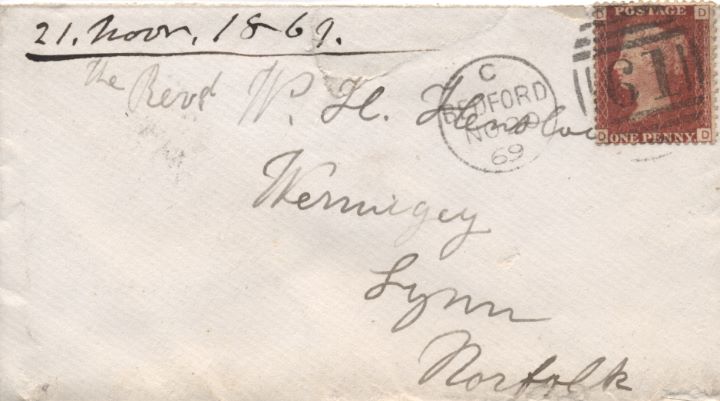 21. Novr. 1869.
The Revd W. H. Henslow
Wermigey
Lynn
Norfolk
C
BEDFORD
NO 20
69
POSTAGE
D D
61
ONE PENNY.
D D